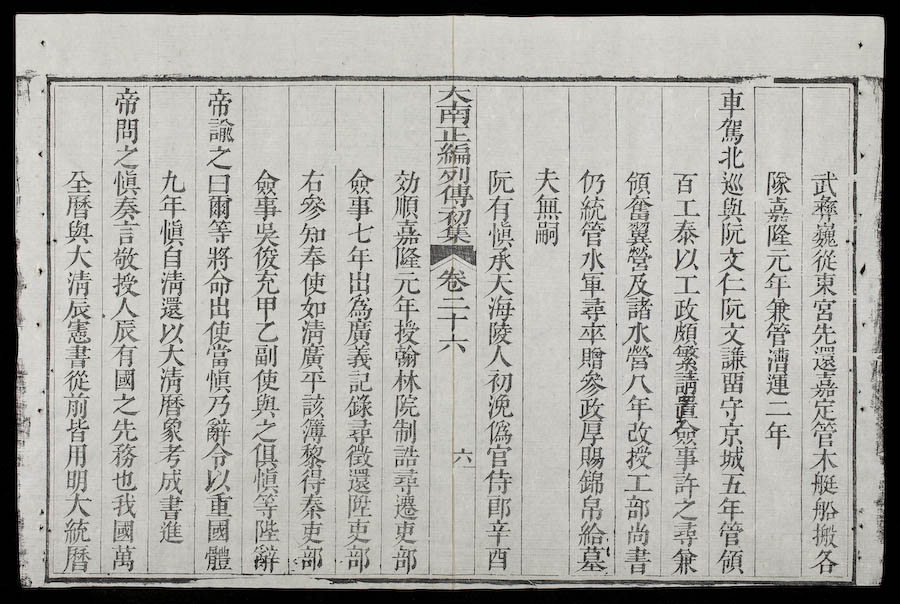 武彝巍從東宮先還嘉定管木艇船搬各
隊嘉隆元年兼管漕運二年
車駕北巡與阮文仁阮文謙畱守京城五年管領
百工泰以工政頗繁請置僉事許之尋兼
領奮翼營及諸水營八年改授工部尚書
仍統管水軍尋卒贈參政厚賜錦帛給墓
夫無嗣
阮有慎承天海陵人初浼偽官侍郎辛酉
大南正編列傳初集 卷二十六 六
効順嘉隆元年授翰林院制誥尋遷吏部
僉事七年出為廣義記錄尋徵還陞吏部
右參知奉使如清廣平該簿黎得秦吏部
僉事吳俊充甲乙副使與之俱慎等陛辭
帝諭之曰爾等將命出使當慎乃辭令以重國體
九年慎自清還以大清曆象考成書進
帝問之慎奏言敬授人辰有國之先務也我國萬
全曆與大清辰憲書從前皆用明大統曆